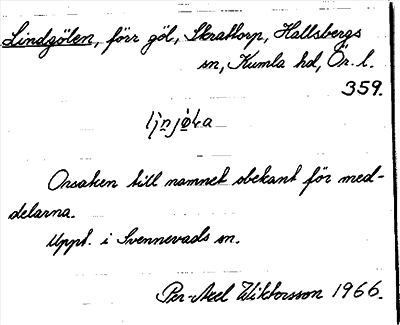 Lindgölen, förr göl, Skrattorp, Hallsbergs
sn, Kumla hd, Ör. l.
359.
Orsaken till namnet obekant för med-
delarna.
Uppt. i Svennevads sn.
Per-Axel Wiktorsson 1966.